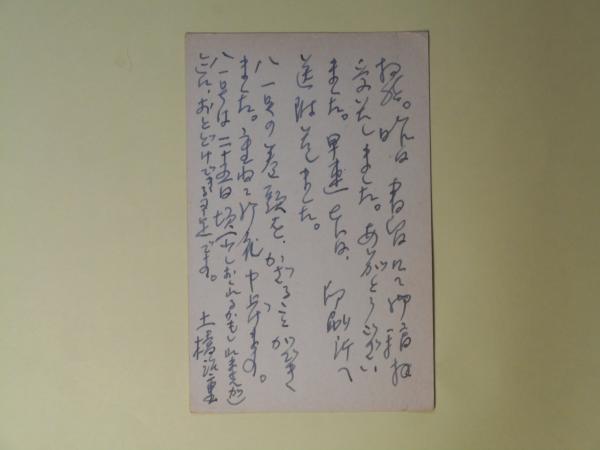 拝啓。昨日書留にて御玉稿
受取りました。ありがとうございい
ました。早速本日、印刷所へ
送附しました。
八一号の巻頭を、かざることができ
ました。重ねて御礼申上げます。
八一号は二十五日頃(少しおくれるかもしれませんが)
には、おとどけできる予定です。
土橋治重